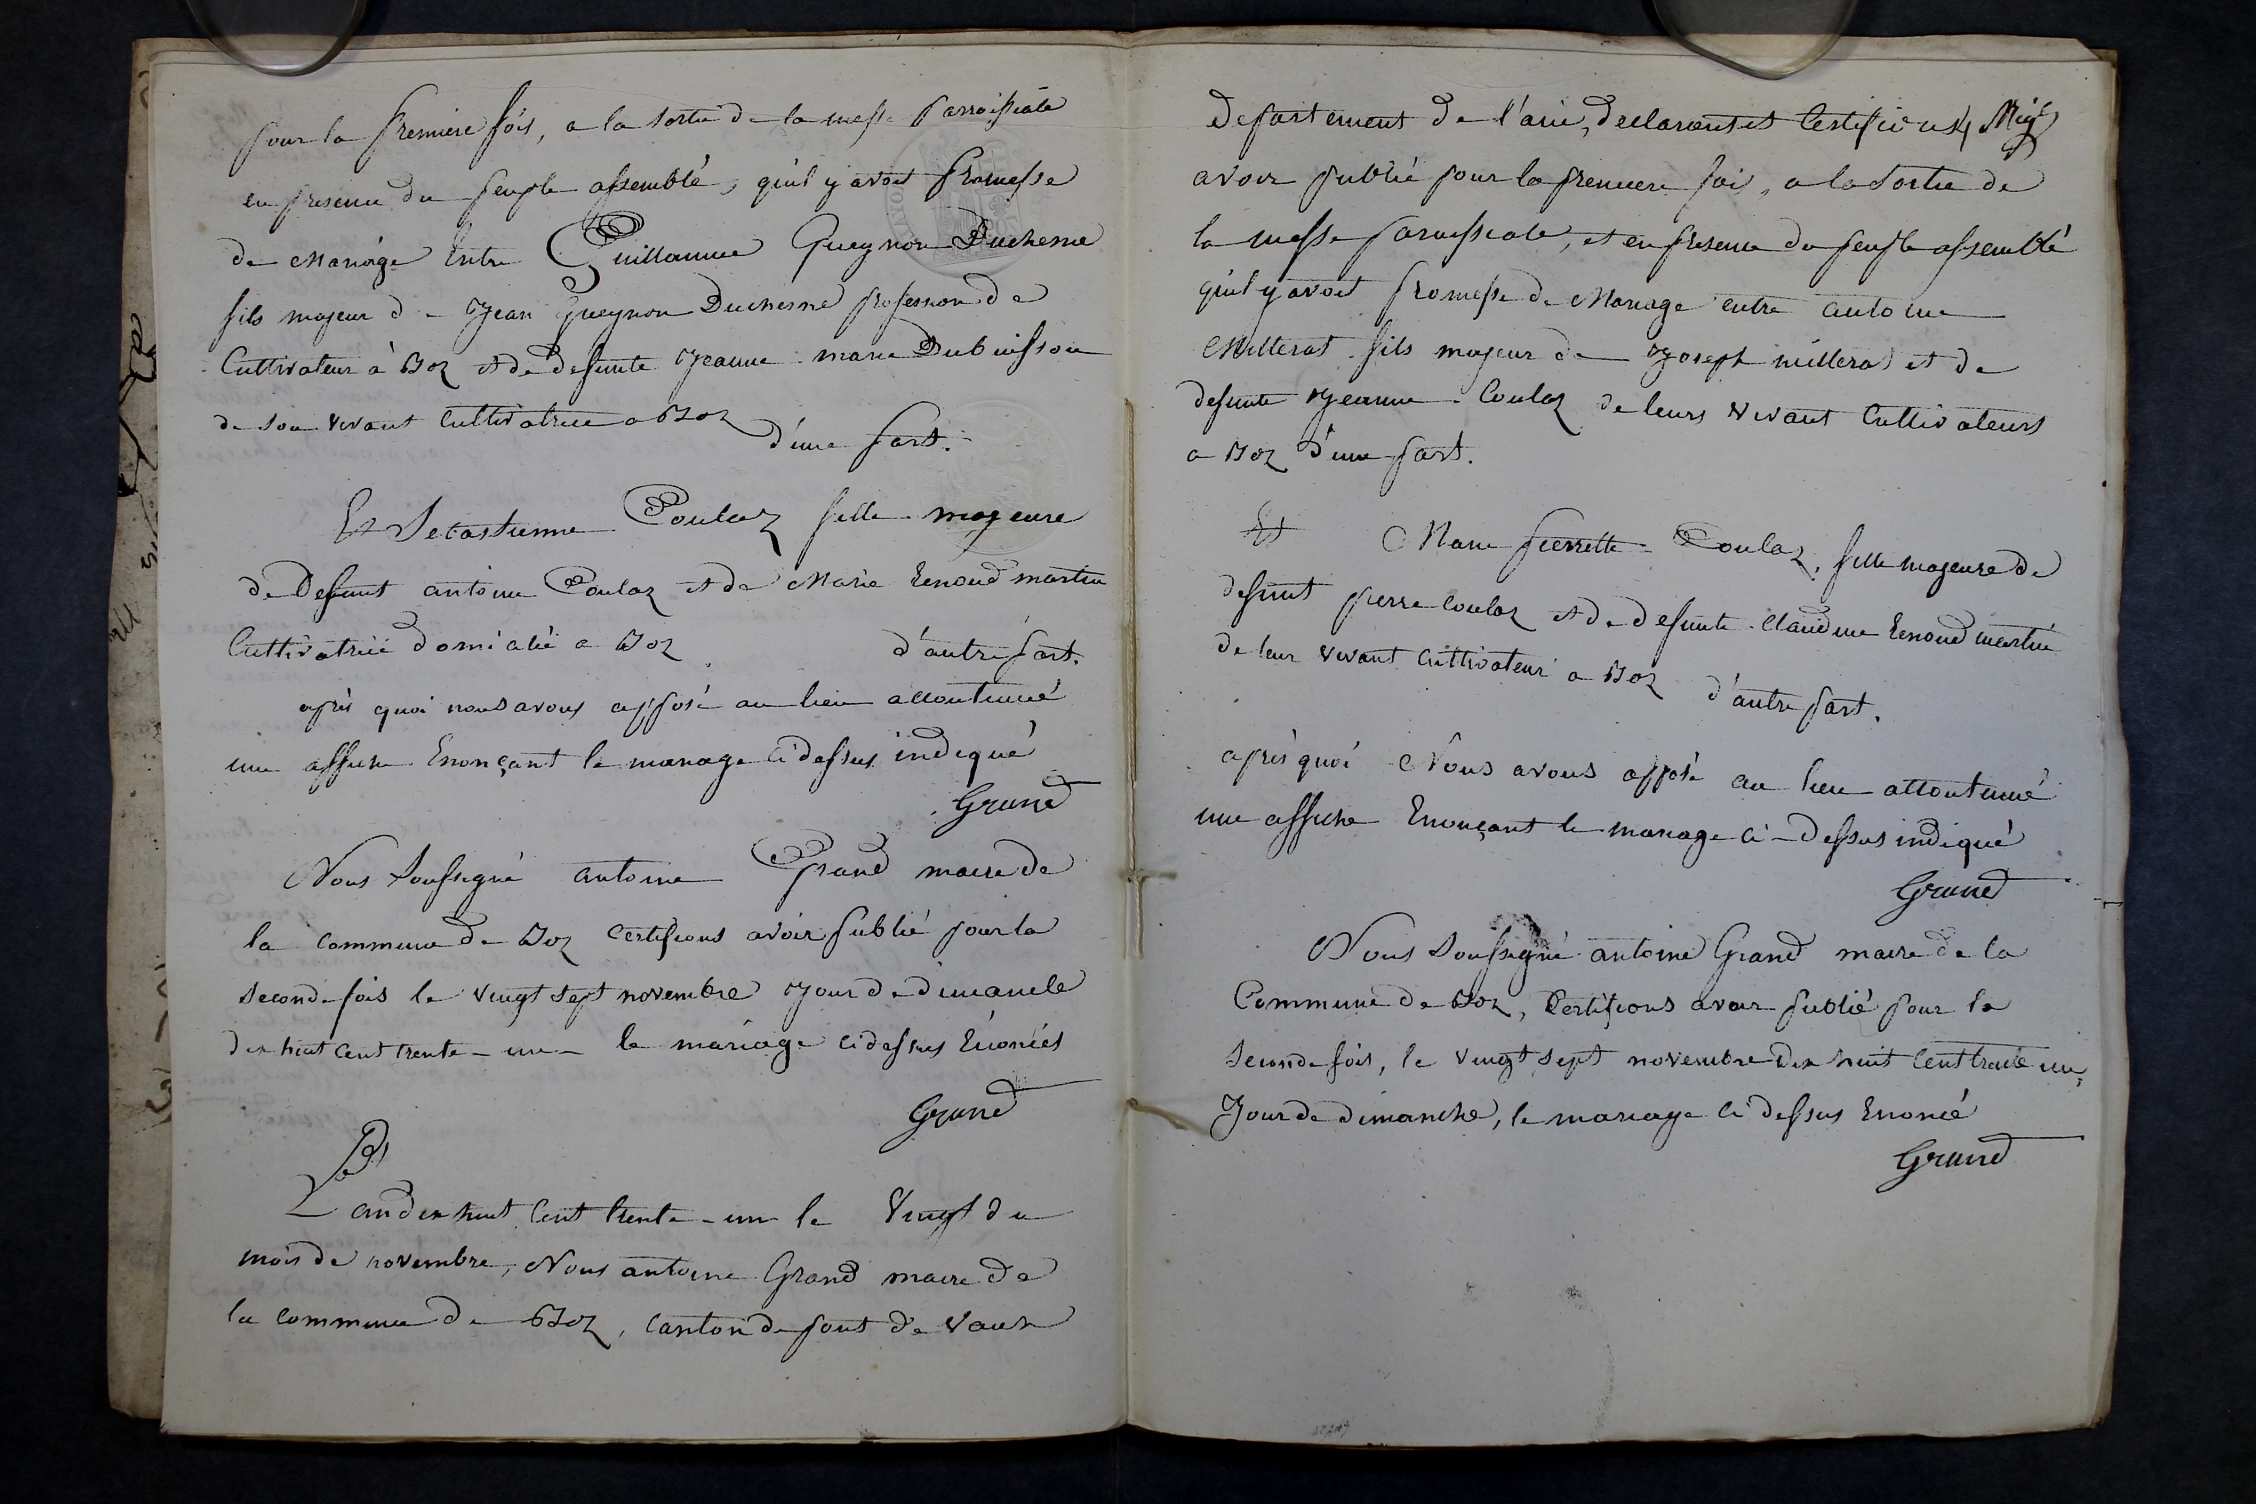 pour la premiere fois, a la sortie de la messe parroissiale
en presence du peuple assemblé, qu'il y avoit promesse
de Mariage Entre Guillaume Gueynon Duchesne
fils majeur de Jean Gueynon Duchesne profession de
Cultivateur à Boz et de defunte Jeanne marie Dubuisson
de son vivant Cultivatrice a Boz
d'une part.
Et Sebastienne Coulaz fille majeure
de Defunt antoine Coulaz et de Marie Renoud martin
Cultivatrice domicilié a Boz d'autre part.
après quoi nous avons apposé au lieu accoutumé
une affiche Enonçant le mariage ci dessus indiqué
Grand
Nous soussigné antoine Grand maire de
la commune de Boz certifions avoir publié pour la
seconde fois le vingt sept novembre Jour de dimanche
dix huit cent trente-un le mariage ci dessus Enoncés
Grand
L'an dix huit cent trente-un le Vingt du
mois de novembre, Nous antoine Grand maire de
la commune de Boz, canton de pont de vaux
Departement de l'ain, declarons et Certifions
avoir publié pour la premiere fois, a la sortie de
la messe paroissiale, et en presence du peuple assemblé
qu'il y avoit promesse de Mariage entre antoine
Millerat fils majeur de Joseph millerat et de
defunte Jeanne Coulaz de leurs vivant Cultivateurs
a Boz d'une part.
Et Marie pierrette Coulaz, fille majeure de
defunt pierre coulaz et de defunte Claudine Renoud martin
de leur vivant cultivateur a Boz d'autre part.
après quoi Nous avons apposé au lieu accoutumé
une affiche Enonçant le mariage ci-dessus indiqué
Grand
Nous soussigné antoine Grand maire de la
Commune de Boz, Certifions avoir publié pour la
seconde fois, le vingt sept novembre dix huit cent trente un,
Jour de dimanche, le mariage ci dessus Enoncé
Grand